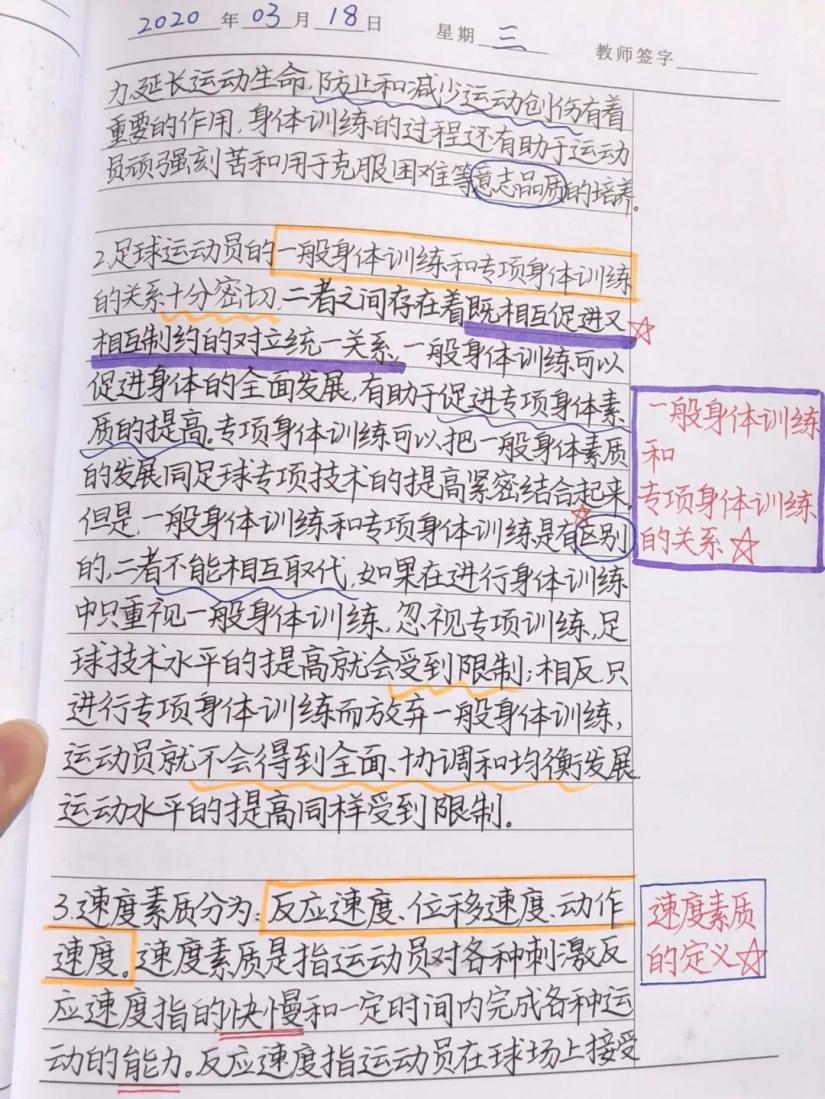 2020 年 03 月 18 日 星期 三 教师签字
力,延长运动生命,防止和减少运动创伤有着
重要的作用,身体训练的过程还有助于运动
员顽强刻苦和用于克服困难等意志品质的培养。
2.足球运动员的一般身体训练和专项身体训练
的关系十分密切,二者之间存在着既相互促进又
相互制约的对立统一关系,一般身体训练可以
促进身体的全面发展,有助于促进专项身体素
质的提高。专项身体训练可以把一般身体素质
的发展同足球专项技术的提高紧密结合起来,
但是,一般身体训练和专项身体训练是有区别
的,二者不能相互取代,如果在进行身体训练
中只重视一般身体训练,忽视专项训练,足
球技术水平的提高就会受到限制;相反,只
进行专项身体训练而放弃一般身体训练,
运动员就不会得到全面、协调和均衡发展,
运动水平的提高同样受到限制。
一般身体训练
和
专项身体训练
的关系☆
3.速度素质分为:反应速度、位移速度、动作
速度。速度素质是指运动员对各种刺激反
应速度指的快慢和一定时间内完成各种运
动的能力。反应速度指运动员在球场上接受
速度素质
的定义☆